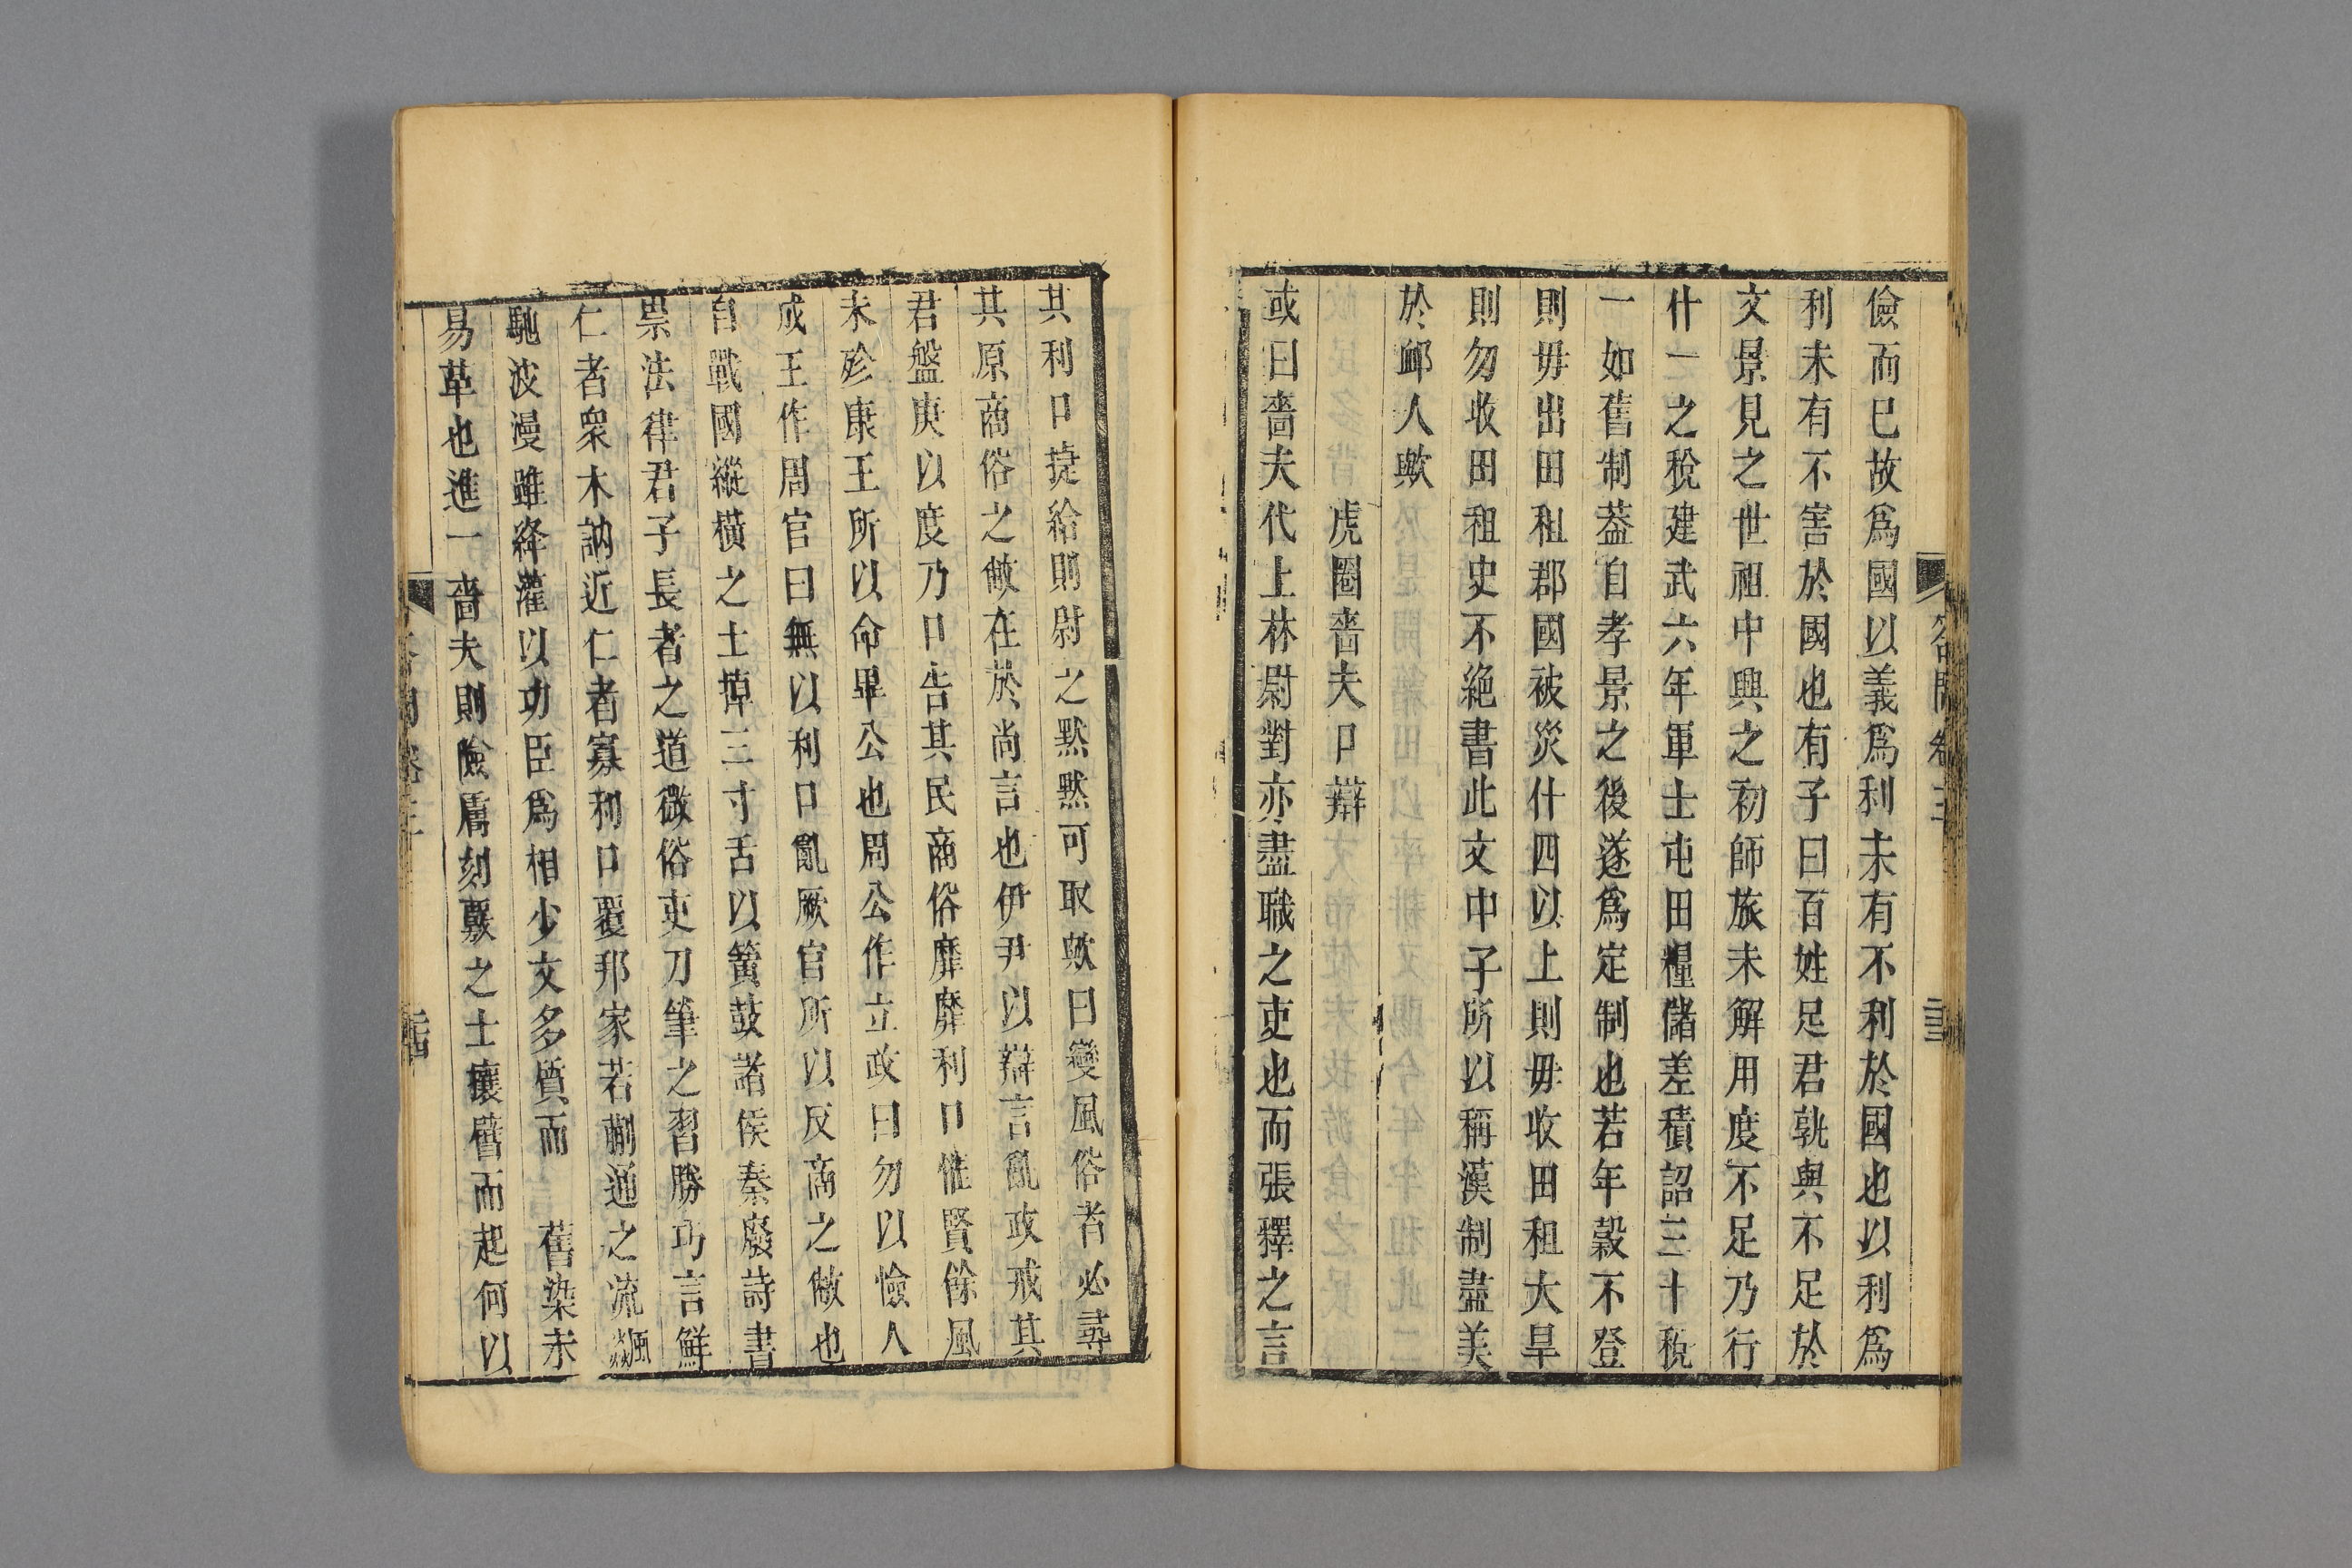 儉而已故爲國以義爲利未有不利於國也以利爲
利未有不害於國也有子曰百姓足君孰與不足於
文景見之世祖中興之初師旅未解用度不足乃行
什一之稅建武六年軍士屯田糧儲差積詔三十稅
一如舊制葢自孝景之後遂爲定制也若年穀不登
則毋出田租郡國被災什四以上則毋收田租大旱
則勿收田租史不絕書此文中子所以稱漢制盡美
於䘏人歟
虎圈嗇夫口辯
或曰嗇夫代上林尉對亦盡職之吏也而張釋之言
其利口捷給則尉之黙黙可取歟曰變風俗者必尋
其原商俗之敝在於尚言也伊尹以辯言亂政戒其
君盤庚以度乃口告其民商俗靡靡利口惟賢餘風
未殄康王所以命畢公也周公作立政曰勿以憸人
成王作周官曰無以利口亂厥官所以反商之敝也
自戰國縱横之士掉三寸舌以簧鼓諸侯秦廢詩書
崇法律君子長者之道微俗吏刀筆之習勝巧言鮮
仁者衆木訥近仁者寡利口覆邦家若蒯通之流飈
馳波漫雖絳灌以功臣爲相少文多質而 舊染未
易革也進一嗇夫則險膚刻覈之士攘臂而起何以
答問卷三